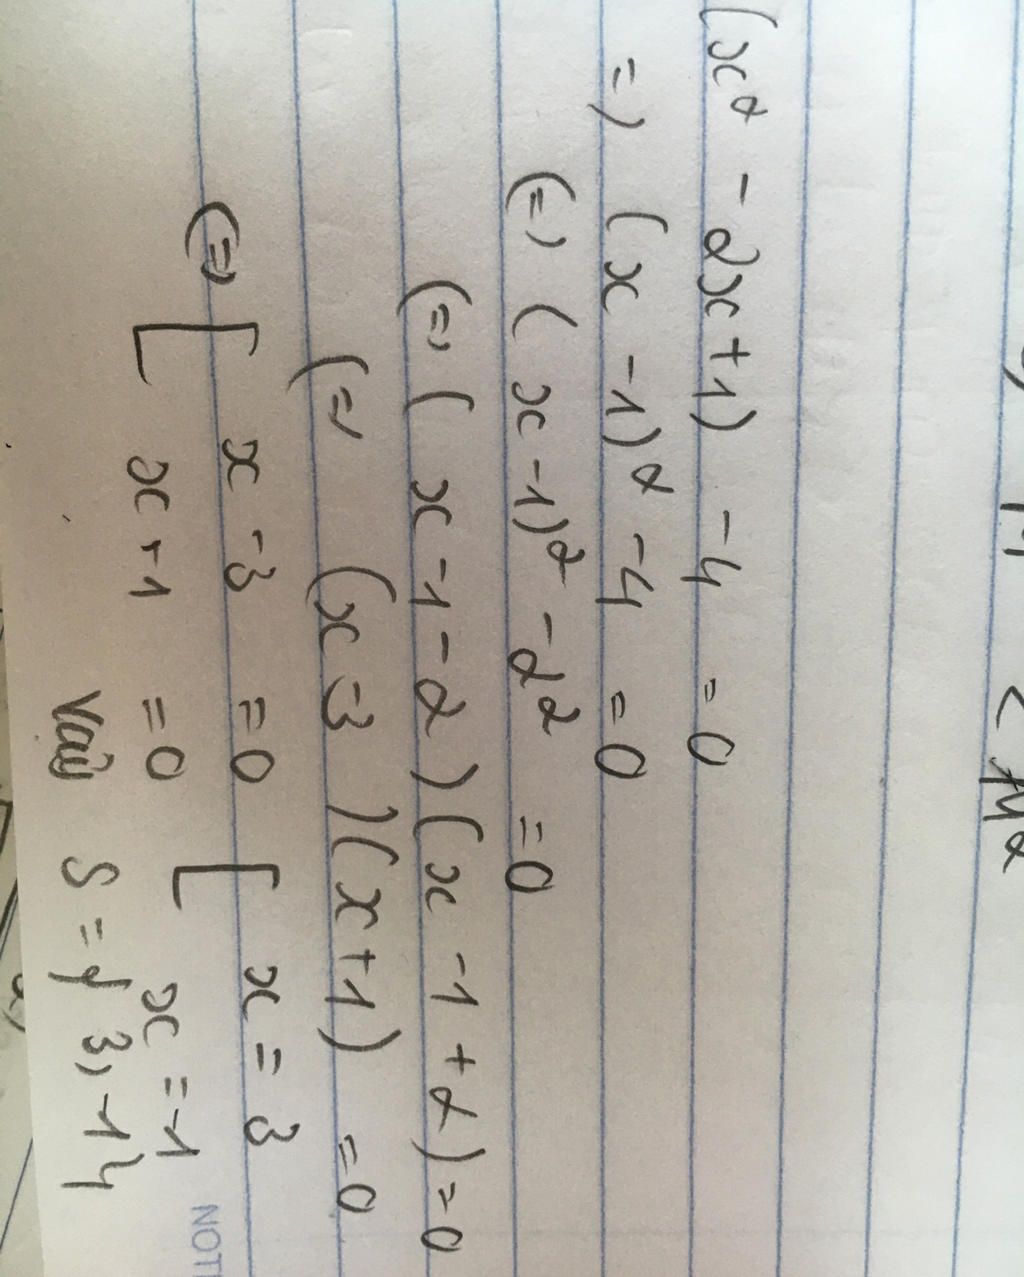 (x² - 2x + 1) - 4 = 0
=) (x - 1)² - 4 = 0
(=) (x - 1)² - 2² = 0
(=) (x - 1 - 2)(x - 1 + 2) = 0
(=) (x - 3)(x + 1) = 0
(=) [ x - 3 = 0 [ x = 3
x + 1 = 0 x = -1
Vậy S = { 3, -1 }
NOT